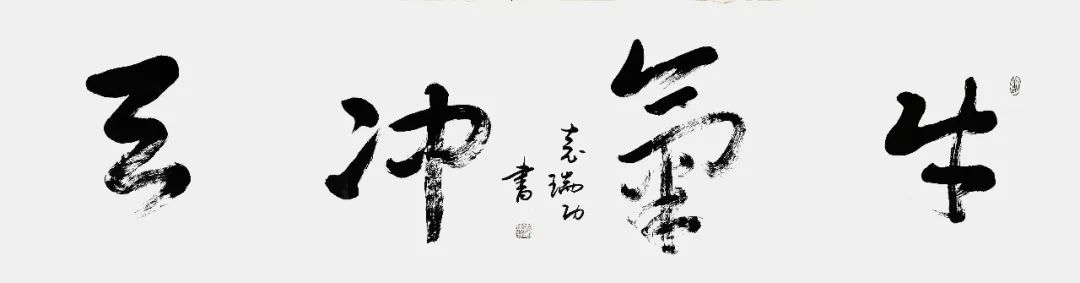 牛氣冲天
袁瑞功
書